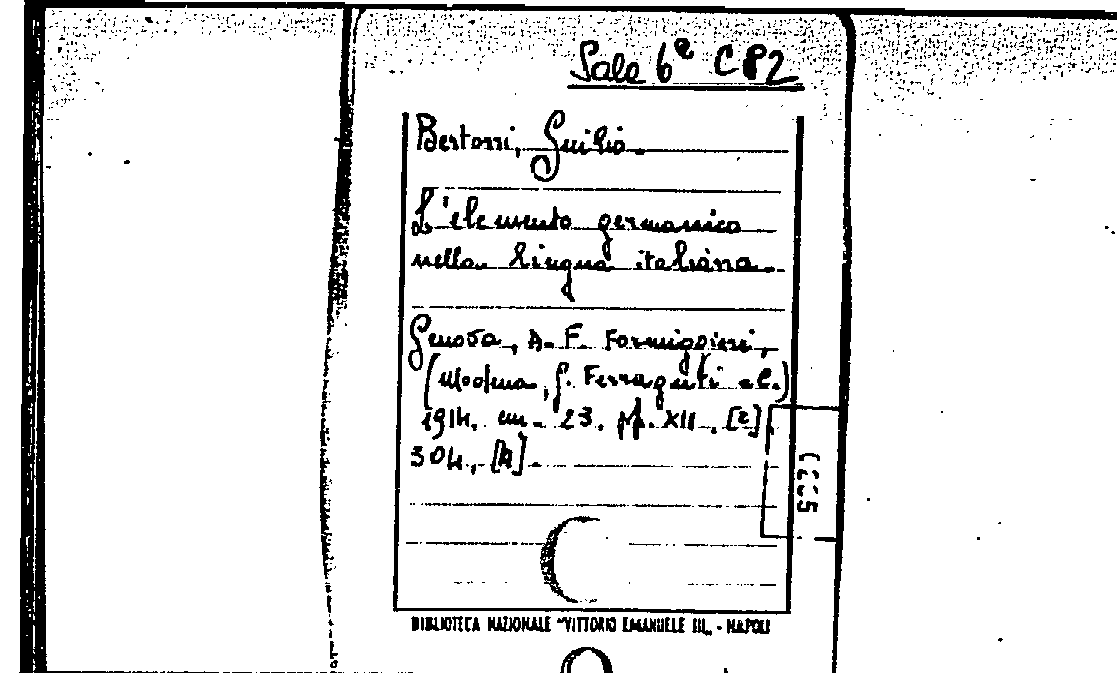 Sala 6ª C82
Bertoni, Giulio.
L'elemento germanico
nella lingua italiana.
Genova, A. F. Formiggini,
(Modena, G. Ferraguti e C.)
1914. cm. 23. pp. XII. [2],
304, [4].
BIBLIOTECA NAZIONALE "VITTORIO EMANUELE III" - NAPOLI